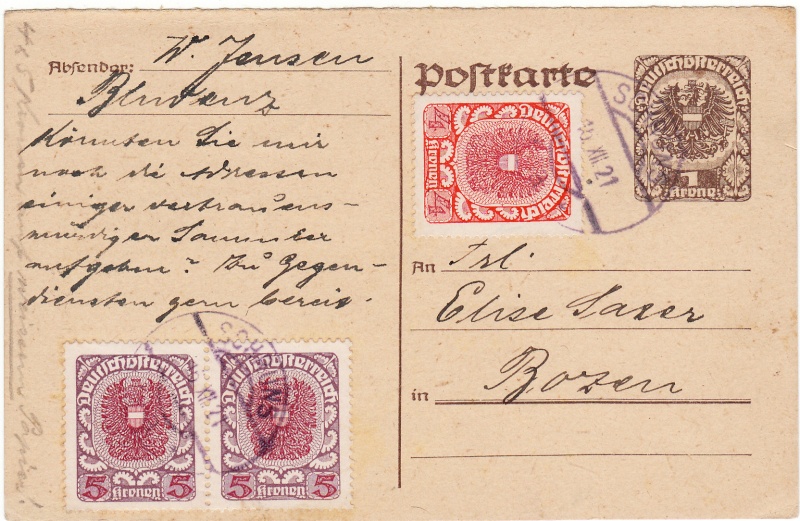 Absender: W. Jensen
Bludenz
Könnten Sie mir
noch die Adressen
einiger vertrauens-
würdiger Sammler
aufgeben? Zu Gegen-
diensten gern bereit.
Postkarte
Deutschösterreich
1
Krone
Deutschösterreich
Kronen
15 XII 21
An Frl.
Elise Saxer
in Bozen
SCHRUNS
XII 21
Deutschösterreich
5 Kronen 5
Deutschösterreich
5 Kronen 5